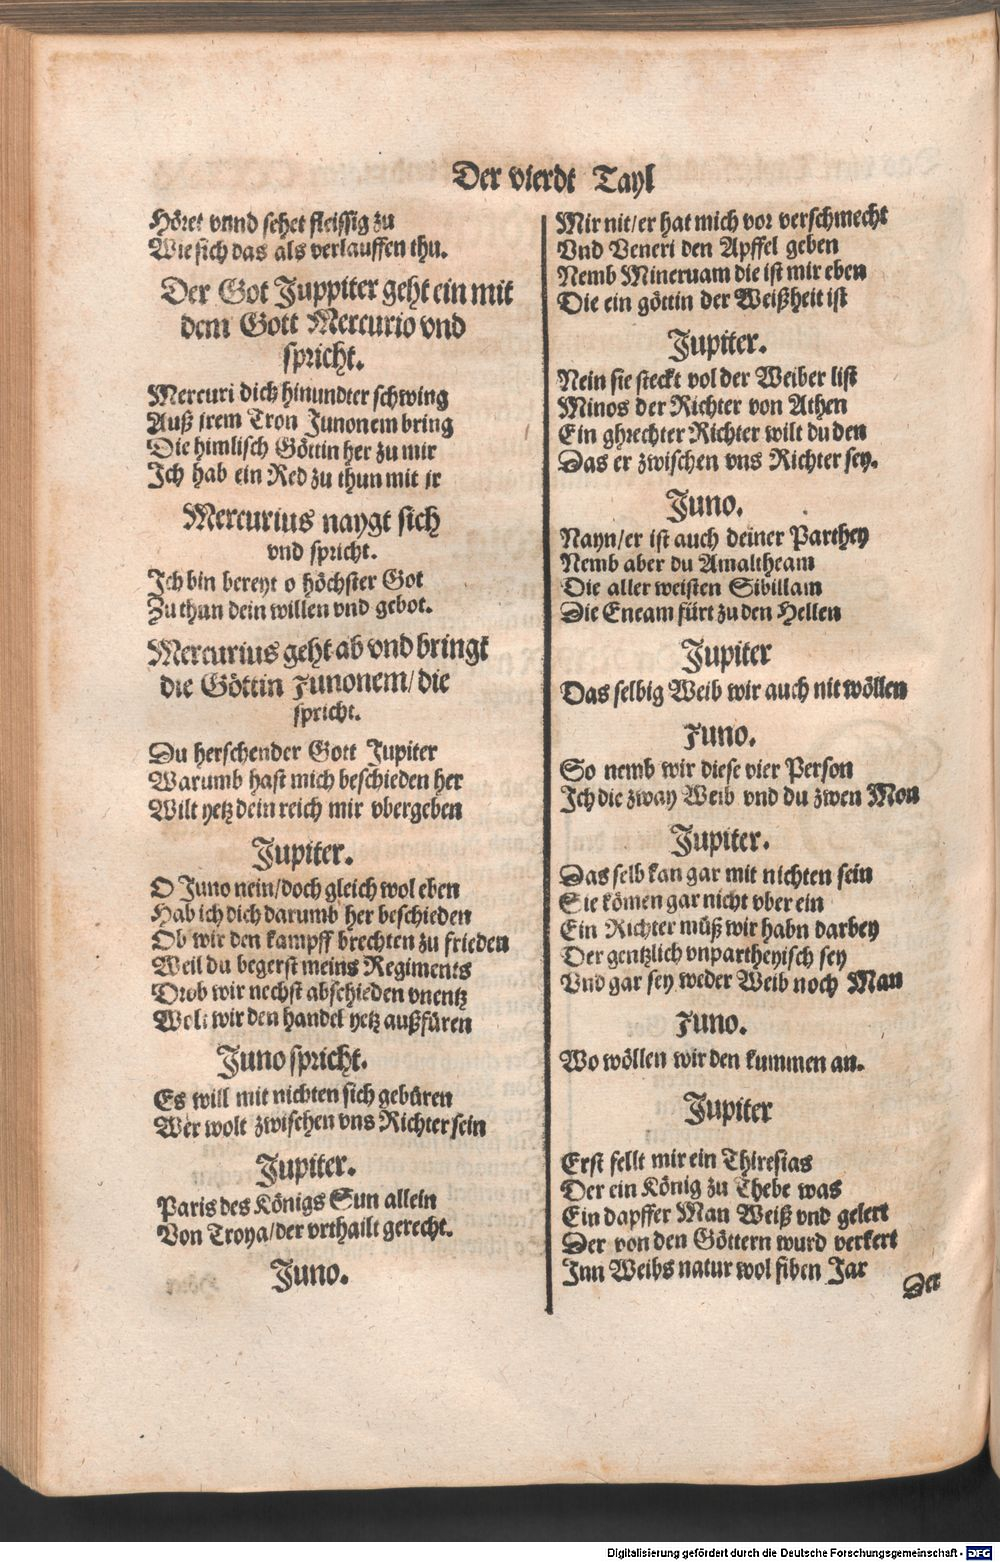 Der vierdt Tayl
Höret vnnd sehet fleissig zu
Wie sich das als verlauffen thu.
Der Got Juppiter geht ein mit
dem Gott Mercurio vnd
spricht.
Mercuri dich hinundter schwing
Auß jrem Tron Junonem bring
Die himlisch Göttin her zu mir
Ich hab ein Red zu thun mit jr
Mercurius naygt sich
vnd spricht.
Ich bin bereyt o höchster Got
Zu thun dein willen vnd gebot.
Mercurius geht ab vnd bringt
die Göttin Junonem/die
spricht.
Du herschender Gott Jupiter
Warumb hast mich beschieden her
Wilt yetz dein reich mir vbergeben
Jupiter.
O Juno nein/doch gleich wol eben
Hab ich dich darumb her beschieden
Ob wir den kampff brechten zu frieden
Weil du begerst meins Regiments
Drob wir nechst abschieden vnentz
Woll wir den handel yetz außfüren
Juno spricht.
Es will mit nichten sich gebüren
Wer wolt zwischen vns Richter sein
Jupiter.
Paris des Königs Sun allein
Von Troya/der vrthailt gerecht.
Juno.
Mir nit/er hat mich vor verschmecht
Vnd Veneri den Apffel geben
Nemb Mineruam die ist mir eben
Die ein göttin der Weißheit ist
Jupiter.
Nein sie steckt vol der Weiber list
Minos der Richter von Athen
Ein ghrechter Richter wilt du den
Das er zwischen vns Richter sey.
Juno.
Nayn/er ist auch deiner Parthey
Nemb aber du Amaltheam
Die aller weisten Sibillam
Die Eneam fürt zu den Hellen
Jupiter
Das selbig Weib wir auch nit wöllen
Juno.
So nemb wir diese vier Person
Ich die zway Weib vnd du zwen Mon
Jupiter.
Das selb kan gar mit nichten sein
Sie kömen gar nicht vber ein
Ein Richter müß wir habn darbey
Der gentzlich vnpartheyisch sey
Vnd gar sey weder Weib noch Man
Juno.
Wo wöllen wir den kummen an.
Jupiter
Erst fellt mir ein Thiresias
Der ein König zu Thebe was
Ein dapffer Man Weiß vnd gelert
Der von den Göttern wurd verkert
Inn Weibs natur wol siben Jar
Der
Digitalisierung gefördert durch die Deutsche Forschungsgemeinschaft - DFG